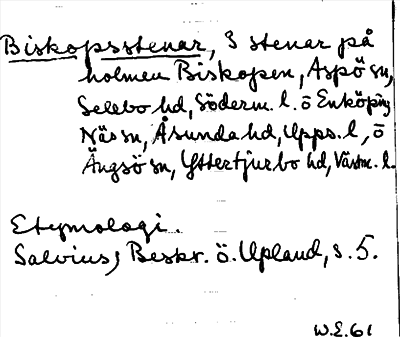 Biskopsstenar, 3 stenar på
holmen Biskopen, Aspö sn,
Selebo hd, Söderm. l. o Enköpings
Näs sn, Åsunda hd, Upps. l, o
Ängsö sn, Yttertjurbo hd, Västm. l.
Etymologi.
Salvius, Beskr. ö. Upland, s. 5.
W.E. 61